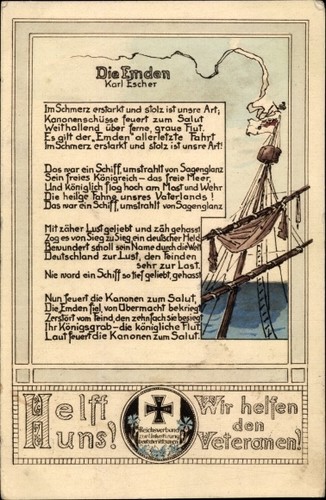 Die Emden
Karl Escher
Im Schmerz erstarkt und stolz ist unsre Art;
Kanonenschüsse feuert zum Salut
Weithallend über ferne, graue Flut.
Es gilt der „Emden" allerletzte Fahrt
Im Schmerz erstarkt und stolz ist unsre Art!
Das war ein Schiff, umstrahlt von Sagenglanz
Sein freies Königreich – das freie Meer,
Und königlich flog hoch am Mast und Wehr
Die heilge Fahne unsres Vaterlands!
Das war ein Schiff, umstrahlt von Sagenglanz
Mit zäher Lust geliebt und zäh gehasst
Zog es von Sieg zu Sieg ein deutscher Held,
Bewundert scholl sein Name durch die Welt,
Deutschland zur Lust, den Feinden
sehr zur Last.
Nie ward ein Schiff so tief geliebt, gehasst
Nun feuert die Kanonen zum Salut,
Die Emden fiel, von Übermacht bekriegt
Zerstört vom Feind, den zehnfach sie besiegt
Ihr Königsgrab – die königliche Flut,
Laut feuert die Kanonen zum Salut.
Helft uns!
Wir helfen den Veteranen!
Reichsverband
zur Unterstützung